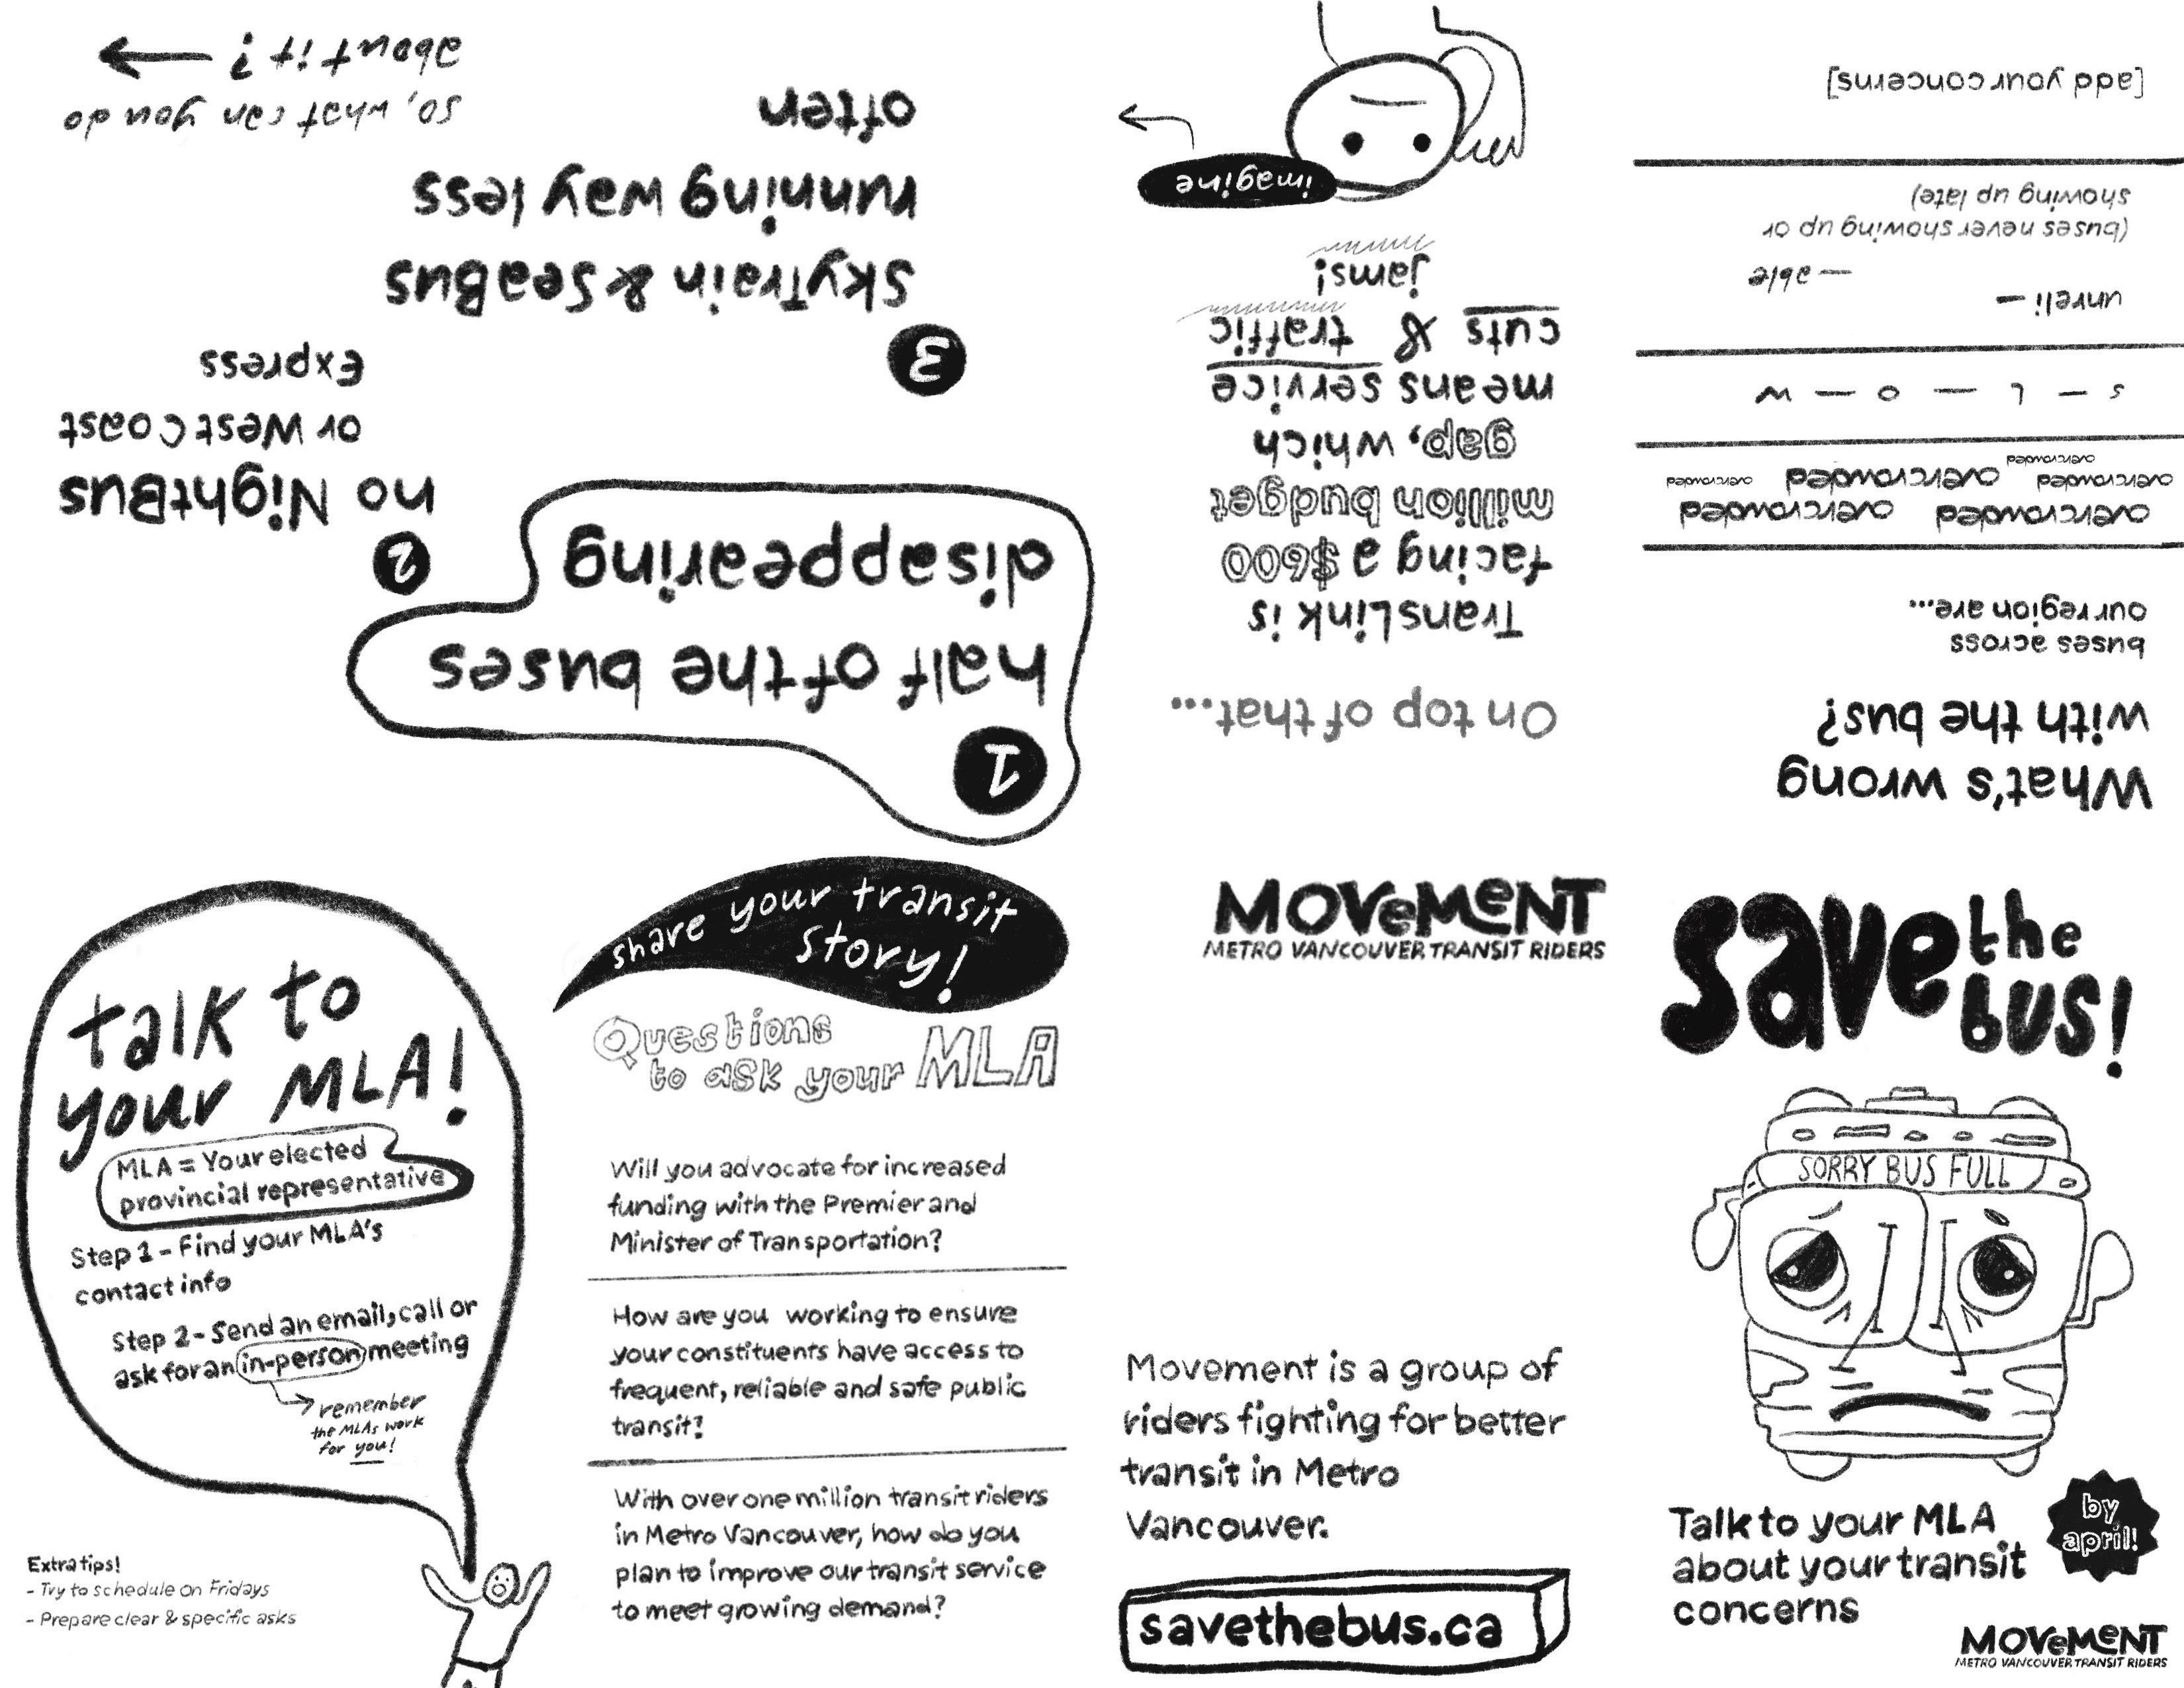 save the
bus!
SORRY BUS FULL
Talk to your MLA
about your transit
concerns
by
april!
MOVEMENT
METRO VANCOUVER TRANSIT RIDERS
What's wrong
with the bus?
buses across
our region are...
overcrowded overcrowded
overcrowded overcrowded overcrowded
overcrowded
S — L — O — W
unreli —
— able
(buses never showing up or
showing up late)
[add your concerns]
On top of that...
TransLink is
facing a $600
million budget
gap, which
means service
cuts & traffic
jams!
imagine
1
half of the buses
disappearing
2
no NightBus
or West Coast
Express
3
SkyTrain & SeaBus
running way less
often
so, what can you do
about it?
talk to
your MLA!
MLA = Your elected
provincial representative
Step 1 - Find your MLA's
contact info
Step 2 - Send an email, call or
ask for an in-person meeting
remember
the MLAs work
for you!
Extra tips!
- Try to schedule on Fridays
- Prepare clear & specific asks
share your transit
story!
Questions
to ask your MLA
Will you advocate for increased
funding with the Premier and
Minister of Transportation?
How are you working to ensure
your constituents have access to
frequent, reliable and safe public
transit?
With over one million transit riders
in Metro Vancouver, how do you
plan to improve our transit service
to meet growing demand?
MOVEMENT
METRO VANCOUVER TRANSIT RIDERS
Movement is a group of
riders fighting for better
transit in Metro
Vancouver.
savethebus.ca